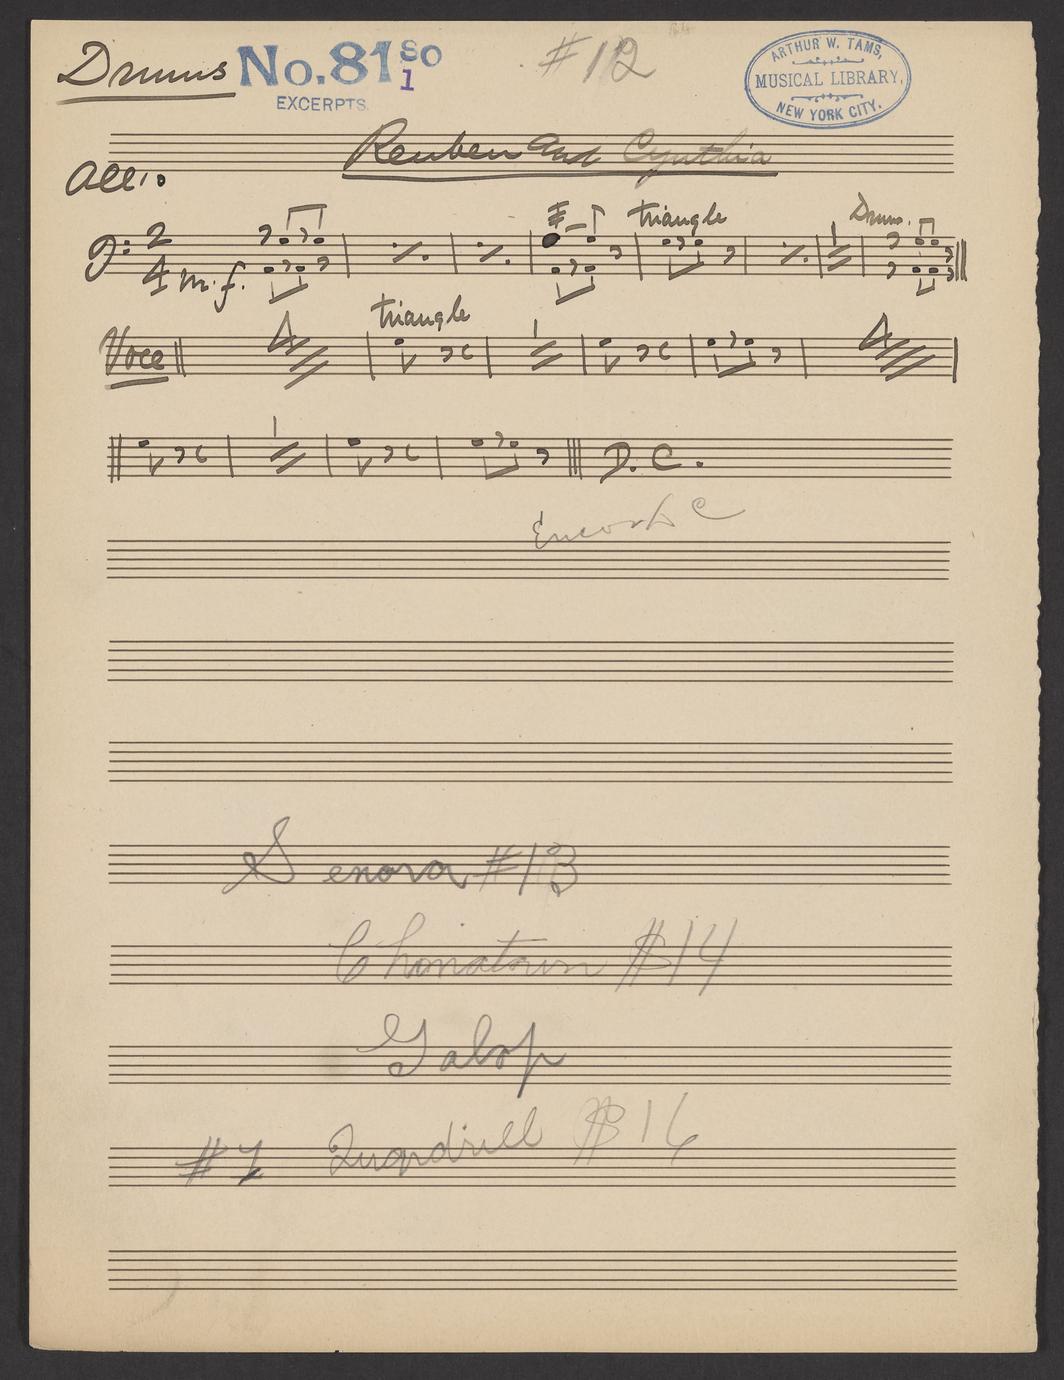 Drums No. 81 so
1
EXCERPTS.
#12
ARTHUR W. TAMS,
MUSICAL LIBRARY,
NEW YORK CITY.
Reuben and Cynthia
All:o
2
4 m.f.
triangle
1
Drums.
Voce
4
triangle
1
4
1
D.C.
Senora #13
Chinatown #14
Galop
#1 Quandrill #16